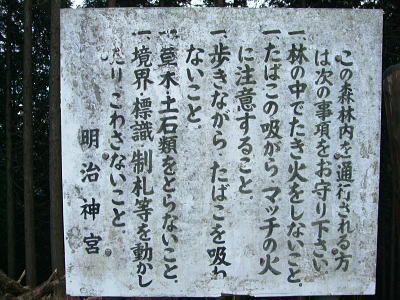 この森林内を通行される方
は次の事項をお守り下さい
一、林の中でたき火をしないこと。
一、たばこの吸がら マッチの火
に注意すること。
一、歩きながら たばこを吸わ
ないこと。
一、草木、土石類をとらないこと。
一、境界、標識、制札等を動かし
たり こわさないこと。
明治神宮